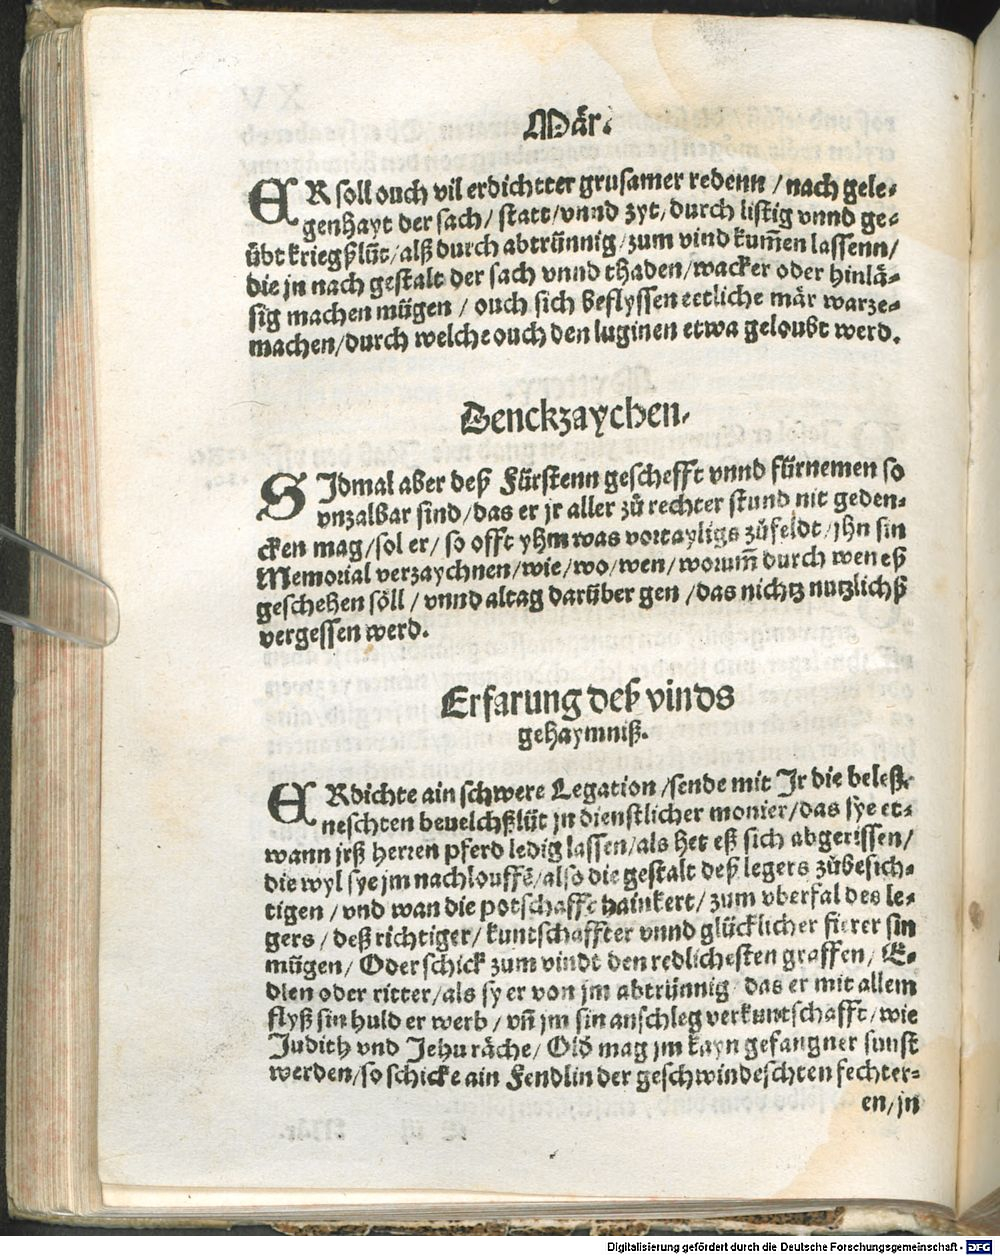 Mär.
ER soll ouch vil erdichtter grusamer redenn / nach gele⸗
genhayt der sach / statt / vnnd zyt / durch listig vnnd ge⸗
übt kriegßlüt / alß durch abtrünnig / zum vind kum̄en lassenn /
die jn nach gestalt der sach vnnd thaden / wacker oder hinlä⸗
sig machen mügen / ouch sich beflyssen eetliche mär warze⸗
machen / durch welche ouch den luginen etwa geloubt werd.
Denckzaychen.
SIdmal aber deß Fürstenn geschefft vnnd fürnemen so
vnzalbar sind / das er jr aller zů rechter stund nit geden⸗
cken mag / sol er / so offt yhm was vortayligs zůfeldt / jhn sin
Memorial verzaychnen / wie / wo / wen / worum̄ durch wen eß
geschehen söll / vnnd altag darüber gen / das nichtz nutzlichß
vergessen werd.
Erfarung deß vinds
gehaymniß.
ERdichte ain schwere Legation / sende mit Jr die beleß⸗
neschten beuelchßlüt jn dienstlicher monier / das sye et⸗
wann jrß herren pferd ledig lassen / als het eß sich abgerissen /
die wyl sye jm nachlouffē / also die gestalt deß legers zůbesich⸗
tigen / vnd wan die potschafft hainkert / zum vberfal des le⸗
gers / deß richtiger / kuntschaffter vnnd glücklicher fierer sin
mügen / Oder schick zum vindt den redlichesten graffen / E⸗
dlen oder ritter / als sy er von jm abtrünnig das er mit allem
flyß sin huld er werb / vn̄ jm sin anschleg verkuntschafft / wie
Judith vnd Jehu räche / Old mag jm kayn gefangner sunst
werden / so schicke ain Fendlin der geschwindeschten fechter⸗
en / jn
Digitalisierung gefördert durch die Deutsche Forschungsgemeinschaft - DFG